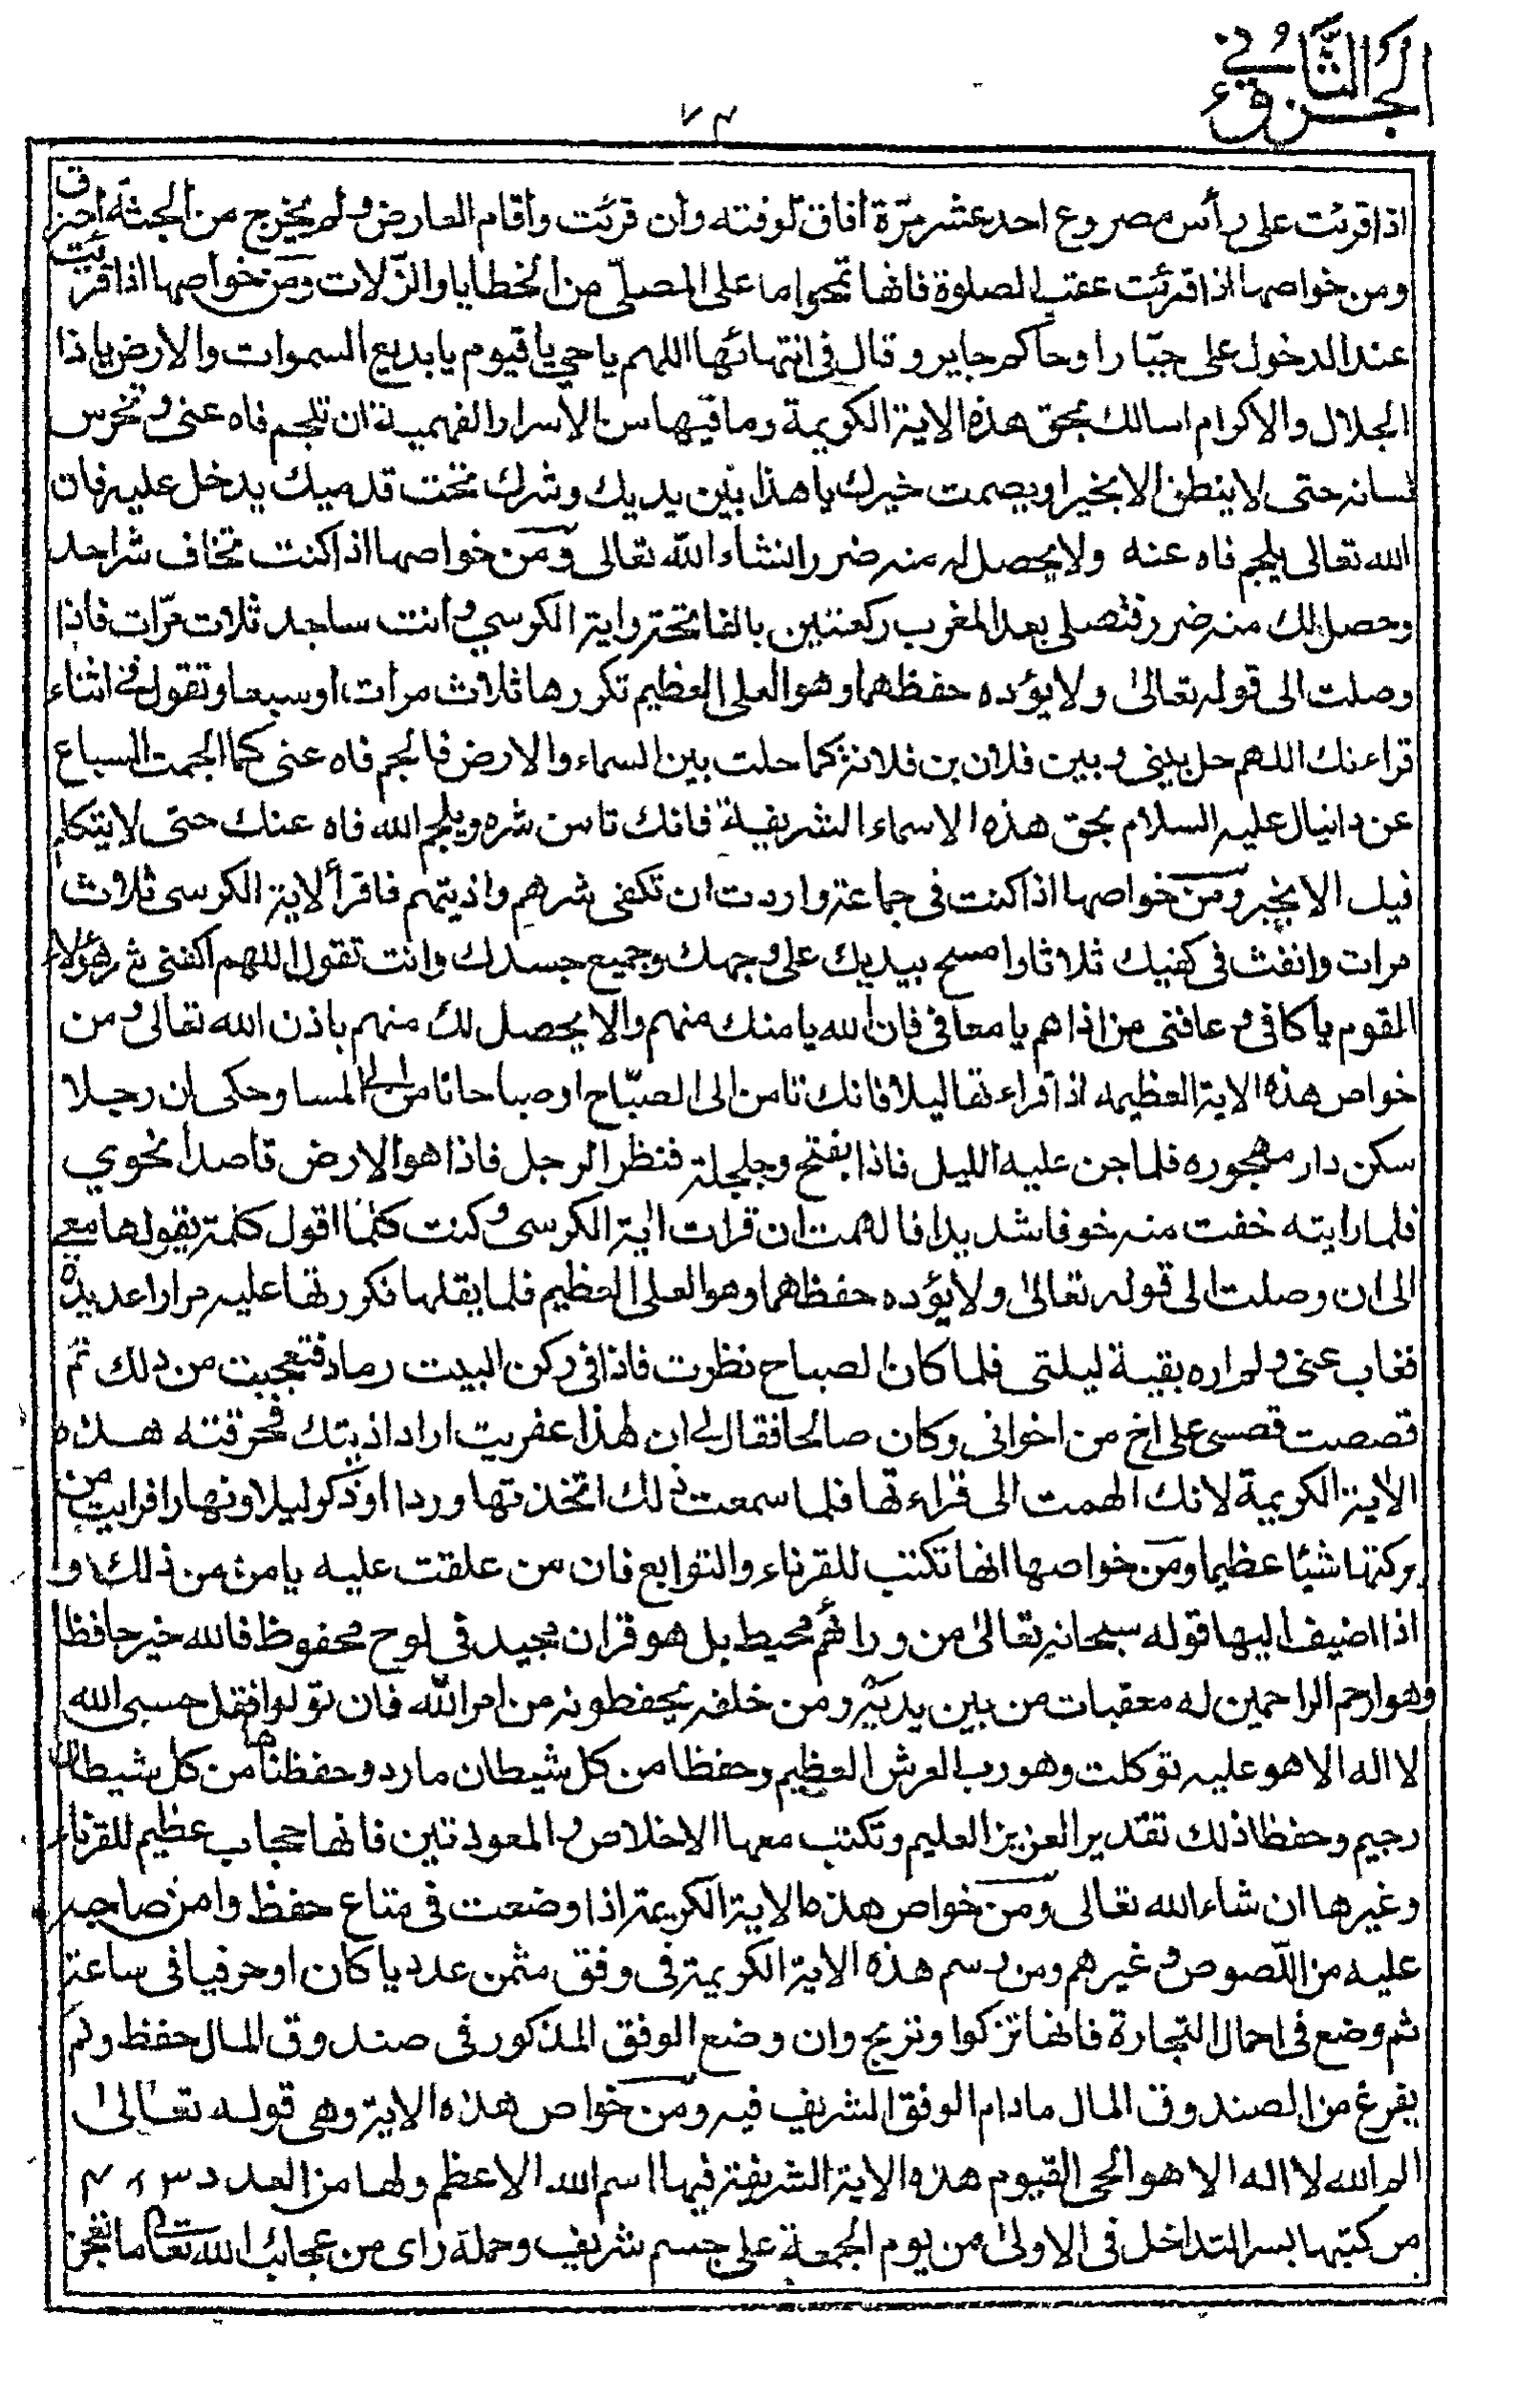 الجزؤ الثاني
٧٤
اذا قرئت على رأس مصروع احد عشر مرّة افاق لوقته وان قرئت واقام العارض ولم يخرج من الجثة احترق
ومن خواصها اذا قرئت عقب الصلوة فانها تمحوا ما على المصلّى من الخطايا والزّلات ومن خواصها اذا قرئت
عند الدخول على جبّارا وحاكم جاير وقال فى انتهائها اللهم ياحي يا قيوم يا بديع السموات والارض ياذا
الجلال والاكرام اسالك بحق هذه الاية الكريمة وما فيها من الاسرار الفهمية ان تلجم فاه عنى وتخرس
لسانه حتى لا ينطق الا بخيرا ويصمت خيرك يا هذا بين يديك وشرك تحت قدميك يدخل عليه فان
الله تعالى يلجم فاه عنه ولا يحصل له منه ضرر انشاء الله تعالى ومن خواصها اذا كنت تخاف شر احد
وحصل لك منه ضرر فتصلى بعد المغرب ركعتين بالفاتحة واية الكرسي وانت ساجد ثلاث مرّات فاذا
وصلت الى قوله تعالى ولا يؤده حفظهما وهو العلى العظيم تكررها ثلاث مرات او سبعا وتقول فى اثناء
قراءتك اللهم حل بينى وبين فلان بن فلانة كما حلت بين السماء والارض فالجم فاه عنى كما الجمت السباع
عن دانيال عليه السلام بحق هذه الاسماء الشريفة فانك تامن شره ويلجم الله فاه عنك حتى لا يتكلم
فيك الا بخير ومن خواصها اذا كنت فى جماعة واردت ان تكفى شرهم واذيتهم فاقرأ لاية الكرسى ثلاث
مرات وانفث فى كفيك ثلاثا وامسح بيديك على وجهك وجميع جسدك وانت تقول اللهم اكفنى شر هؤلاء
القوم يا كافى وعافنى من اذاهم يا معافى فان الله يامنك منهم والا يحصل لك منهم باذن الله تعالى ومن
خواص هذه الاية العظيمه اذا قراءتها ليلا فانك تامن الى الصبّاح او صباحا تامن الى المسا وحكى ان رجلا
سكن دار مهجوره فلما جن عليه الليل فاذا بفتح وجلجلة فنظر الرجل فاذا هو الارض قاصدا نحوي
فلما رايته خفت منه خوفا شديدا فالهمت ان قرات اية الكرسى وكنت كلما اقول كلمة يقولها معي
الى ان وصلت الى قوله تعالى ولا يؤده حفظهما وهو العلى العظيم فلما يقلها فكررتها عليه مرارا عديدة
فغاب عنى ولم اره بقية ليلتى فلما كان الصباح نظرت فاذا فى ركن البيت رماد فتعجبت من ذلك ثم
قصصت قصسى على اخ من اخوانى وكان صالحا فقال لى ان لهذا عفريت اراد اذيتك فحرقته هذه
الاية الكريمة لانك الهمت الى قراءتها فلما سمعت ذلك اتخذتها وردا اوذكر ليلا ونهارا فرايت من
بركتها شيئا عظيما ومن خواصها انها تكتب للقرناء والتوابع فان من علقت عليه يامن من ذلك و
اذا اضيف اليها قوله سبحانه تعالى من ورائهم محيط بل هو قران مجيد فى لوح محفوظ فالله خير حافظا
وهو ارحم الراحمين له معقبات من بين يديه ومن خلفه يحفظونه من امر الله فان تولوا فقل حسبى الله
لا اله الا هو عليه توكلت وهو رب العرش العظيم وحفظا من كل شيطان مارد وحفظناها من كل شيطان
رجيم وحفظا ذلك تقدير العزيز العليم وتكتب معها الاخلاص والمعوذتين فانها حجاب عظيم للقرناء
وغيرها ان شاء الله تعالى ومن خواص هذه الاية الكريمة اذا وضعت فى متاع حفظ وامن صاحبه
عليه من اللّصوص وغيرهم ومن رسم هذه الاية الكريمة فى وفق مثمن عدديا كان او حرفيا فى ساعة
ثم وضع فى احمال التجارة فانها تزكوا وتربح وان وضع الوفق المذكور فى صندوق المال حفظ ولم
يفرغ من الصندوق المال مادام الوفق الشريف فيه ومن خواص هذه الاية وهى قوله تعالى
الم الله لا اله الا هو الحى القيوم هذه الاية الشريفة فيها اسم الله الاعظم ولها من العدد
من كتبها بسر التداخل فى الاولى من يوم الجمعة على جسم شريف وحمله راى من عجائب الله تعالى ما